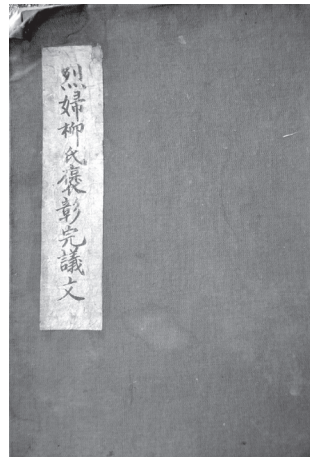 烈婦柳氏褒彰完議文